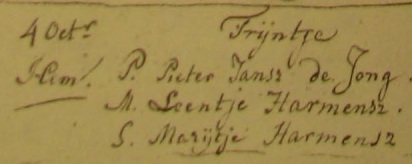 4 Octr. Trijntje
P. Pieter Jansz de Jong
M. Leentje Harmensz.
G. Marijtje Harmensz